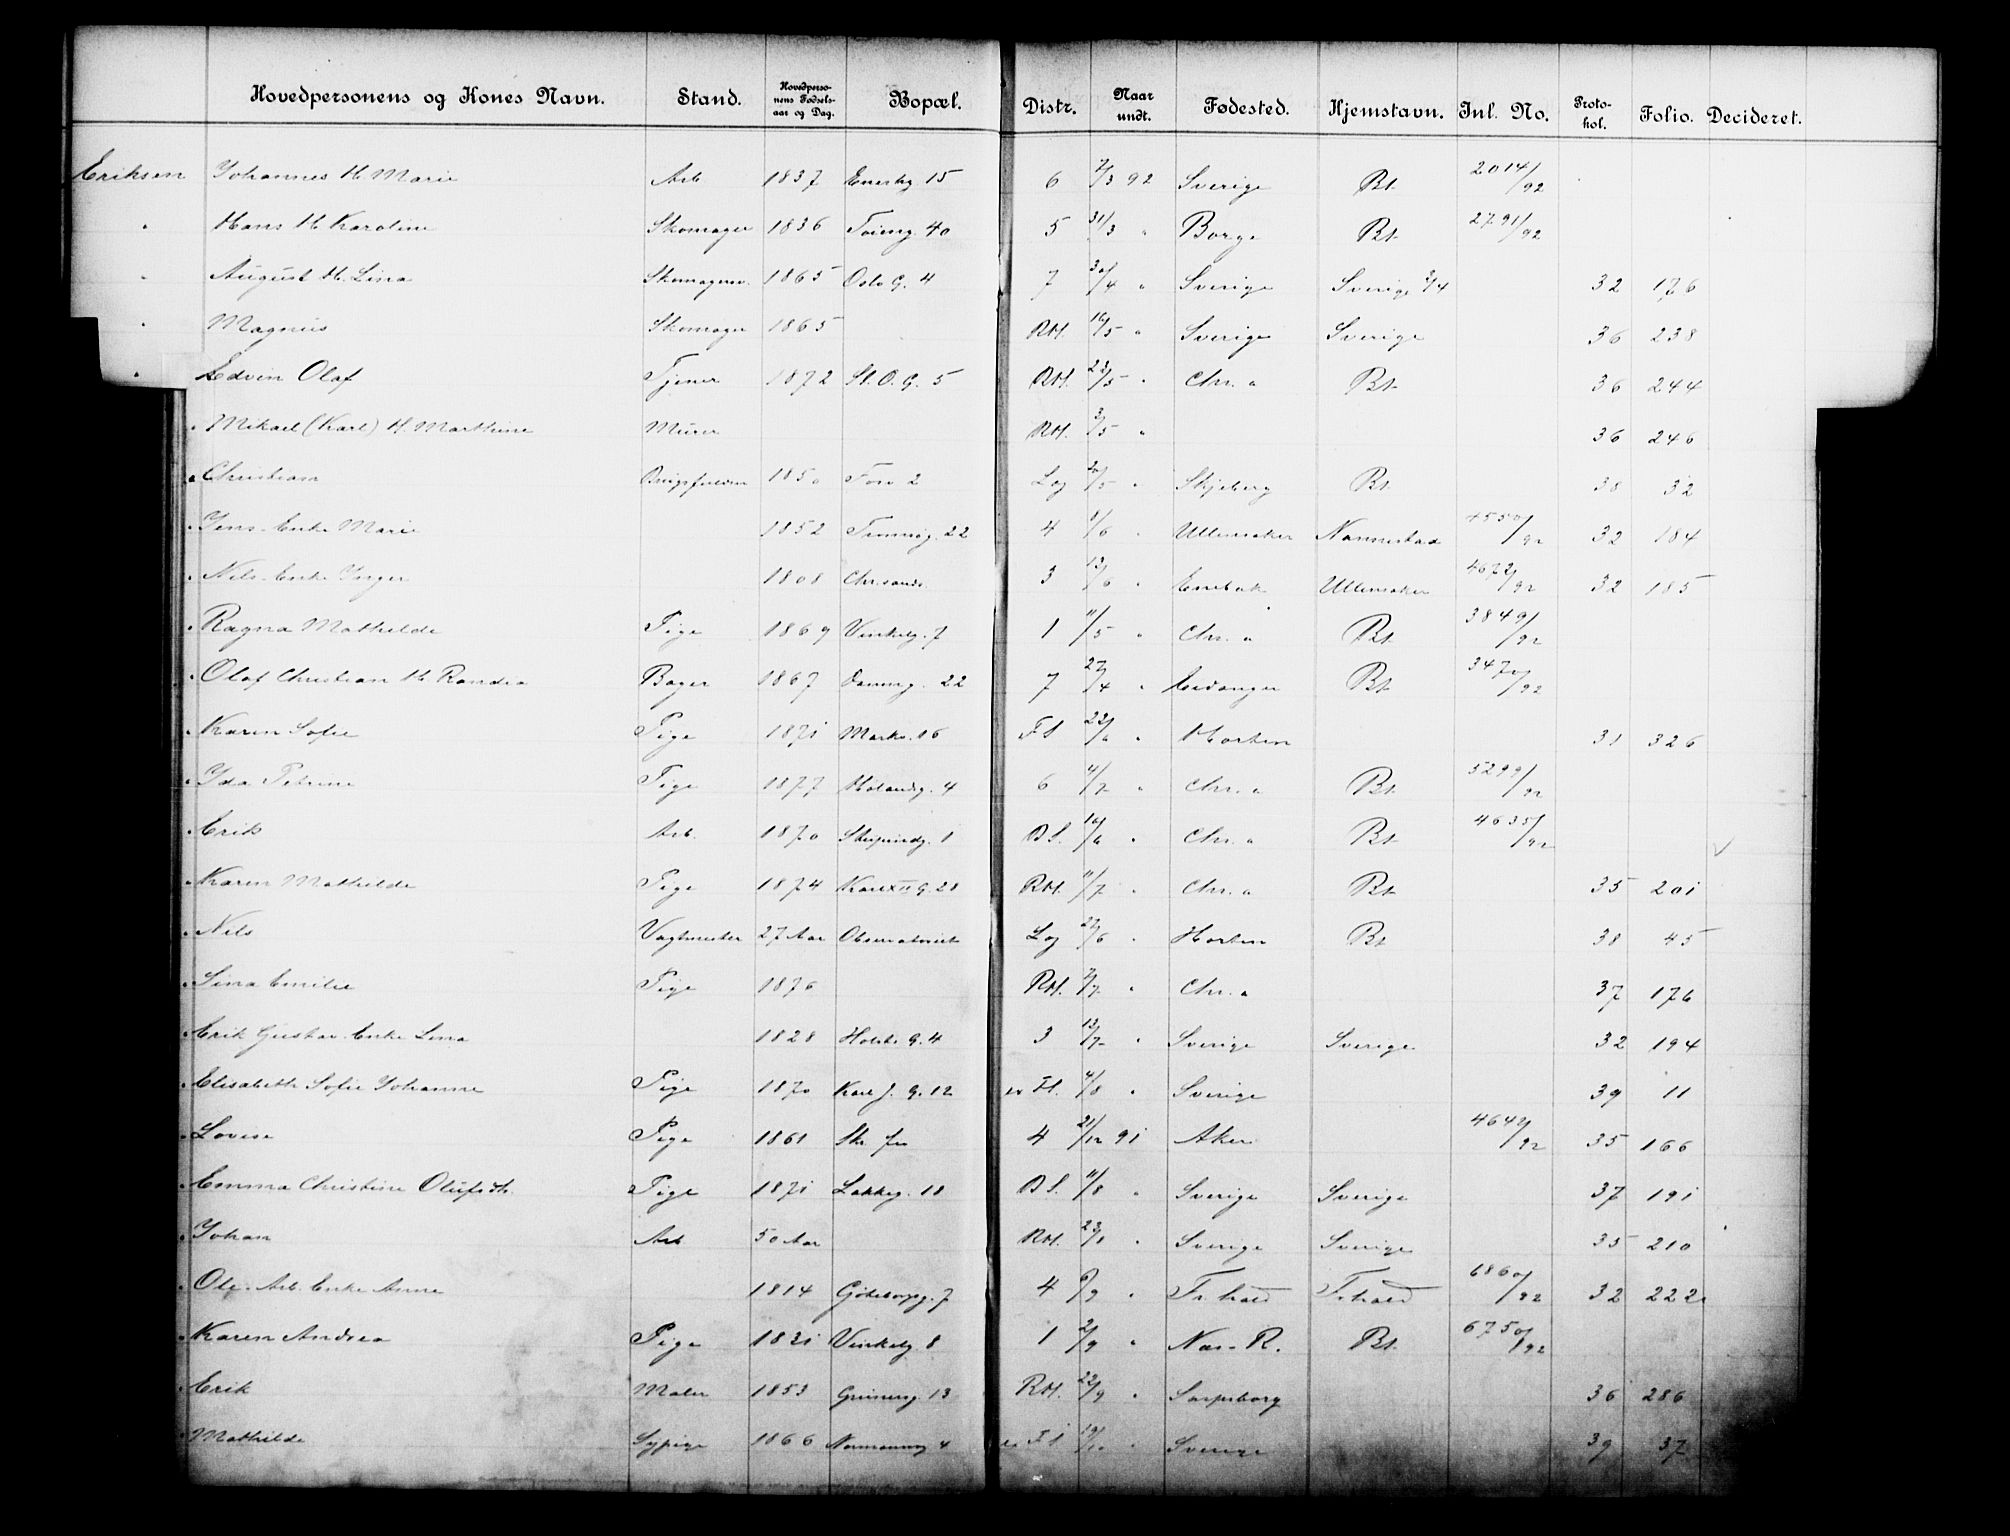 Hovedpersonens og Kones Navn. Stand. Hovedperso-nens Fødsels-aar og Dag. Bopæl. Distr. Naar undt. Fødested. Hjemstavn. Inl. No. Proto-kol. Folio. Decideret.
Eriksen Johannes H. Marie Arb 1837 15 6 7/3 92 Sverige Bt. 2014/92
" Hans H. Karoline Skomager 1836 Toieng 40 5 31/3 " Borge Bt. 2791/92
" August H. Lina Skomagersv. 1865 Oslo G. 4 7 30/4 " Sverige Sverige 3/4 32 176
" Magnus Skomager 1865 RH. 16/5 " Sverige Sverige 36 238
" Edvin Olaf Tjener 1872 St. O. G. 5 RH. 23/5 " Chr. a Bt. 36 244
" Mikael (Karl) H. Marthine Murer RH. 3/5 " 36 246
" Christian 1850 Foss 2 Log /5 " Skjeberg Bt. 38 32
" Jens. Enke Marie 1852 22 4 8/6 " Ullensaker Nannestad 4550/92 32 184
" Nils. Enke Inger 1808 Chr.sands. 3 13/6 " Enebak Ullensaker 4672/92 32 185
" Ragna Mathilde Pige 1869 Vinkelg. 7 1 11/5 " Chr. a Bt. 3849/92
" Olaf Christian H. Randia Bager 1867 22 7 27/4 " Bt. 3470/92
" Karen Sofie Pige 1871 Markv. 16 Fl 22/6 " Horten 31 326
" Ida Petrine Pige 1877 Hølandsg. 4 6 4/7 " Chr. a Bt. 5299/92
" Erik Arb. 1870 1 B S. 16/6 " Chr. a Bt. 4635/92
" Karen Mathilde Pige 1874 Karl XII G. 28 RH. 11/7 " Chr. a Bt. 35 201
" Nils Vagtmester 27 Aar Observatoriet Log 22/6 " Horten Bt 38 45
" Sina Emilie Pige 1876 RH. 7/7 " Chr. a 37 176
" Erik Gustav. Enke Lina 1828 Holsts G. 4 3 13/7 " Sverige Sverige 32 194
" Elisabeth Sofie Johanne Pige 1870 Karl J. G. 12 Fl. 4/8 " Sverige 39 11
" Lovise Pige 1861 4 21/12 91 Aker 4642/92 35 166
" Emma Christine Olufsdt. Pige 1871 Lakkeg. 18 B S. 11/8 " Sverige Sverige 37 191
" Johan Arb 50 Aar RH. 23/8 " Sverige Sverige 35 210
" Ole. Arb. Enke Anne 1814 Göteborgg. 7 4 6/9 " Fr.hald Fr.hald 6860/92 32 222
" Karen Andrea Pige 1831 Vinkelg 8 1 2/9 " Næs. R. Bt. 6750/92
" Erik Maler 1853 Grünerg. 13 RH. 22/9 " Sarpsborg 36 286
" Mathilde Sypige 1866 Normannsg 4 Fl 19/10 " Sverige 39 37